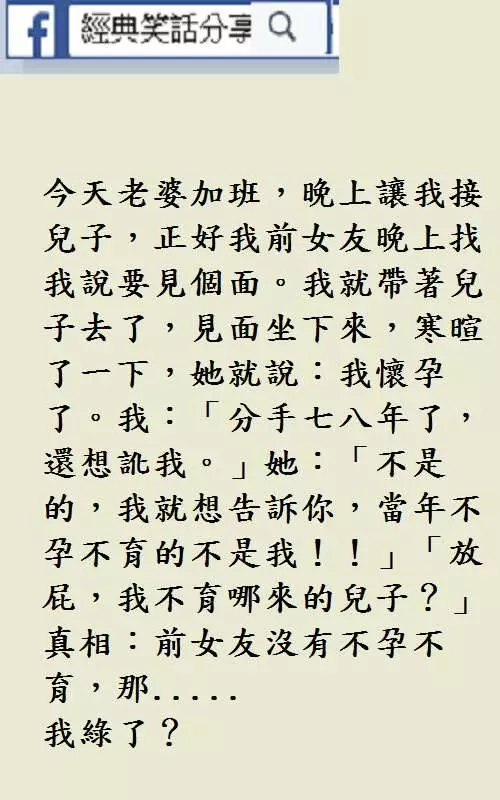 f 經典笑話分享
今天老婆加班，晚上讓我接
兒子，正好我前女友晚上找
我說要見個面。我就帶著兒
子去了，見面坐下來，寒暄
了一下，她就說：我懷孕
了。我：「分手七八年了，
還想訛我。」她：「不是
的，我就想告訴你，當年不
孕不育的不是我！！」「放
屁，我不育哪來的兒子？」
真相：前女友沒有不孕不
育，那.....
我綠了？